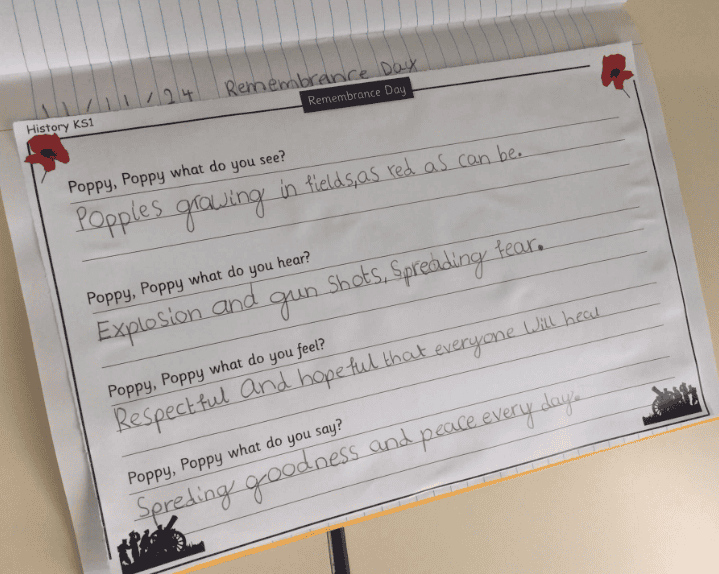 11/11/24 Remembrance Day
Remembrance Day
History KS1
Poppy, Poppy what do you see?
Poppies growing in fields, as red as can be.
Poppy, Poppy what do you hear?
Explosion and gun shots, Spreading fear.
Poppy, Poppy what do you feel?
Respectful and hopeful that everyone will heal
Poppy, Poppy what do you say?
Spreding goodness and peace every day.